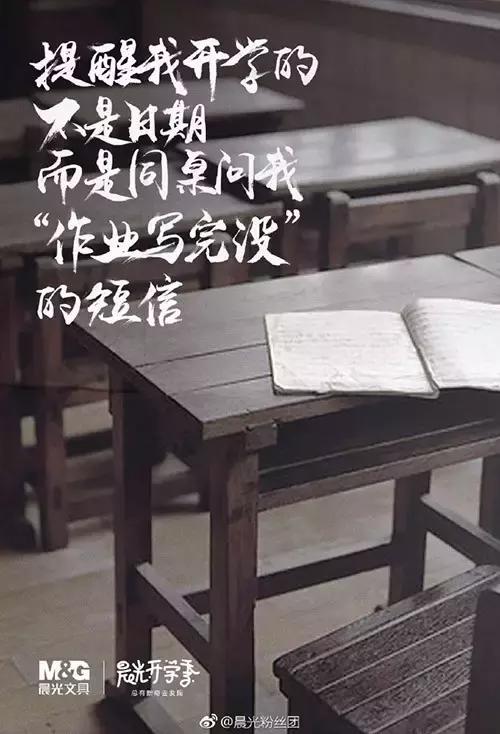 提醒我开学的
不是日期
而是同桌问我
“作业写完没”
的短信
M&G
晨光文具
晨光开学季
总有新奇会发脑
@晨光粉丝团